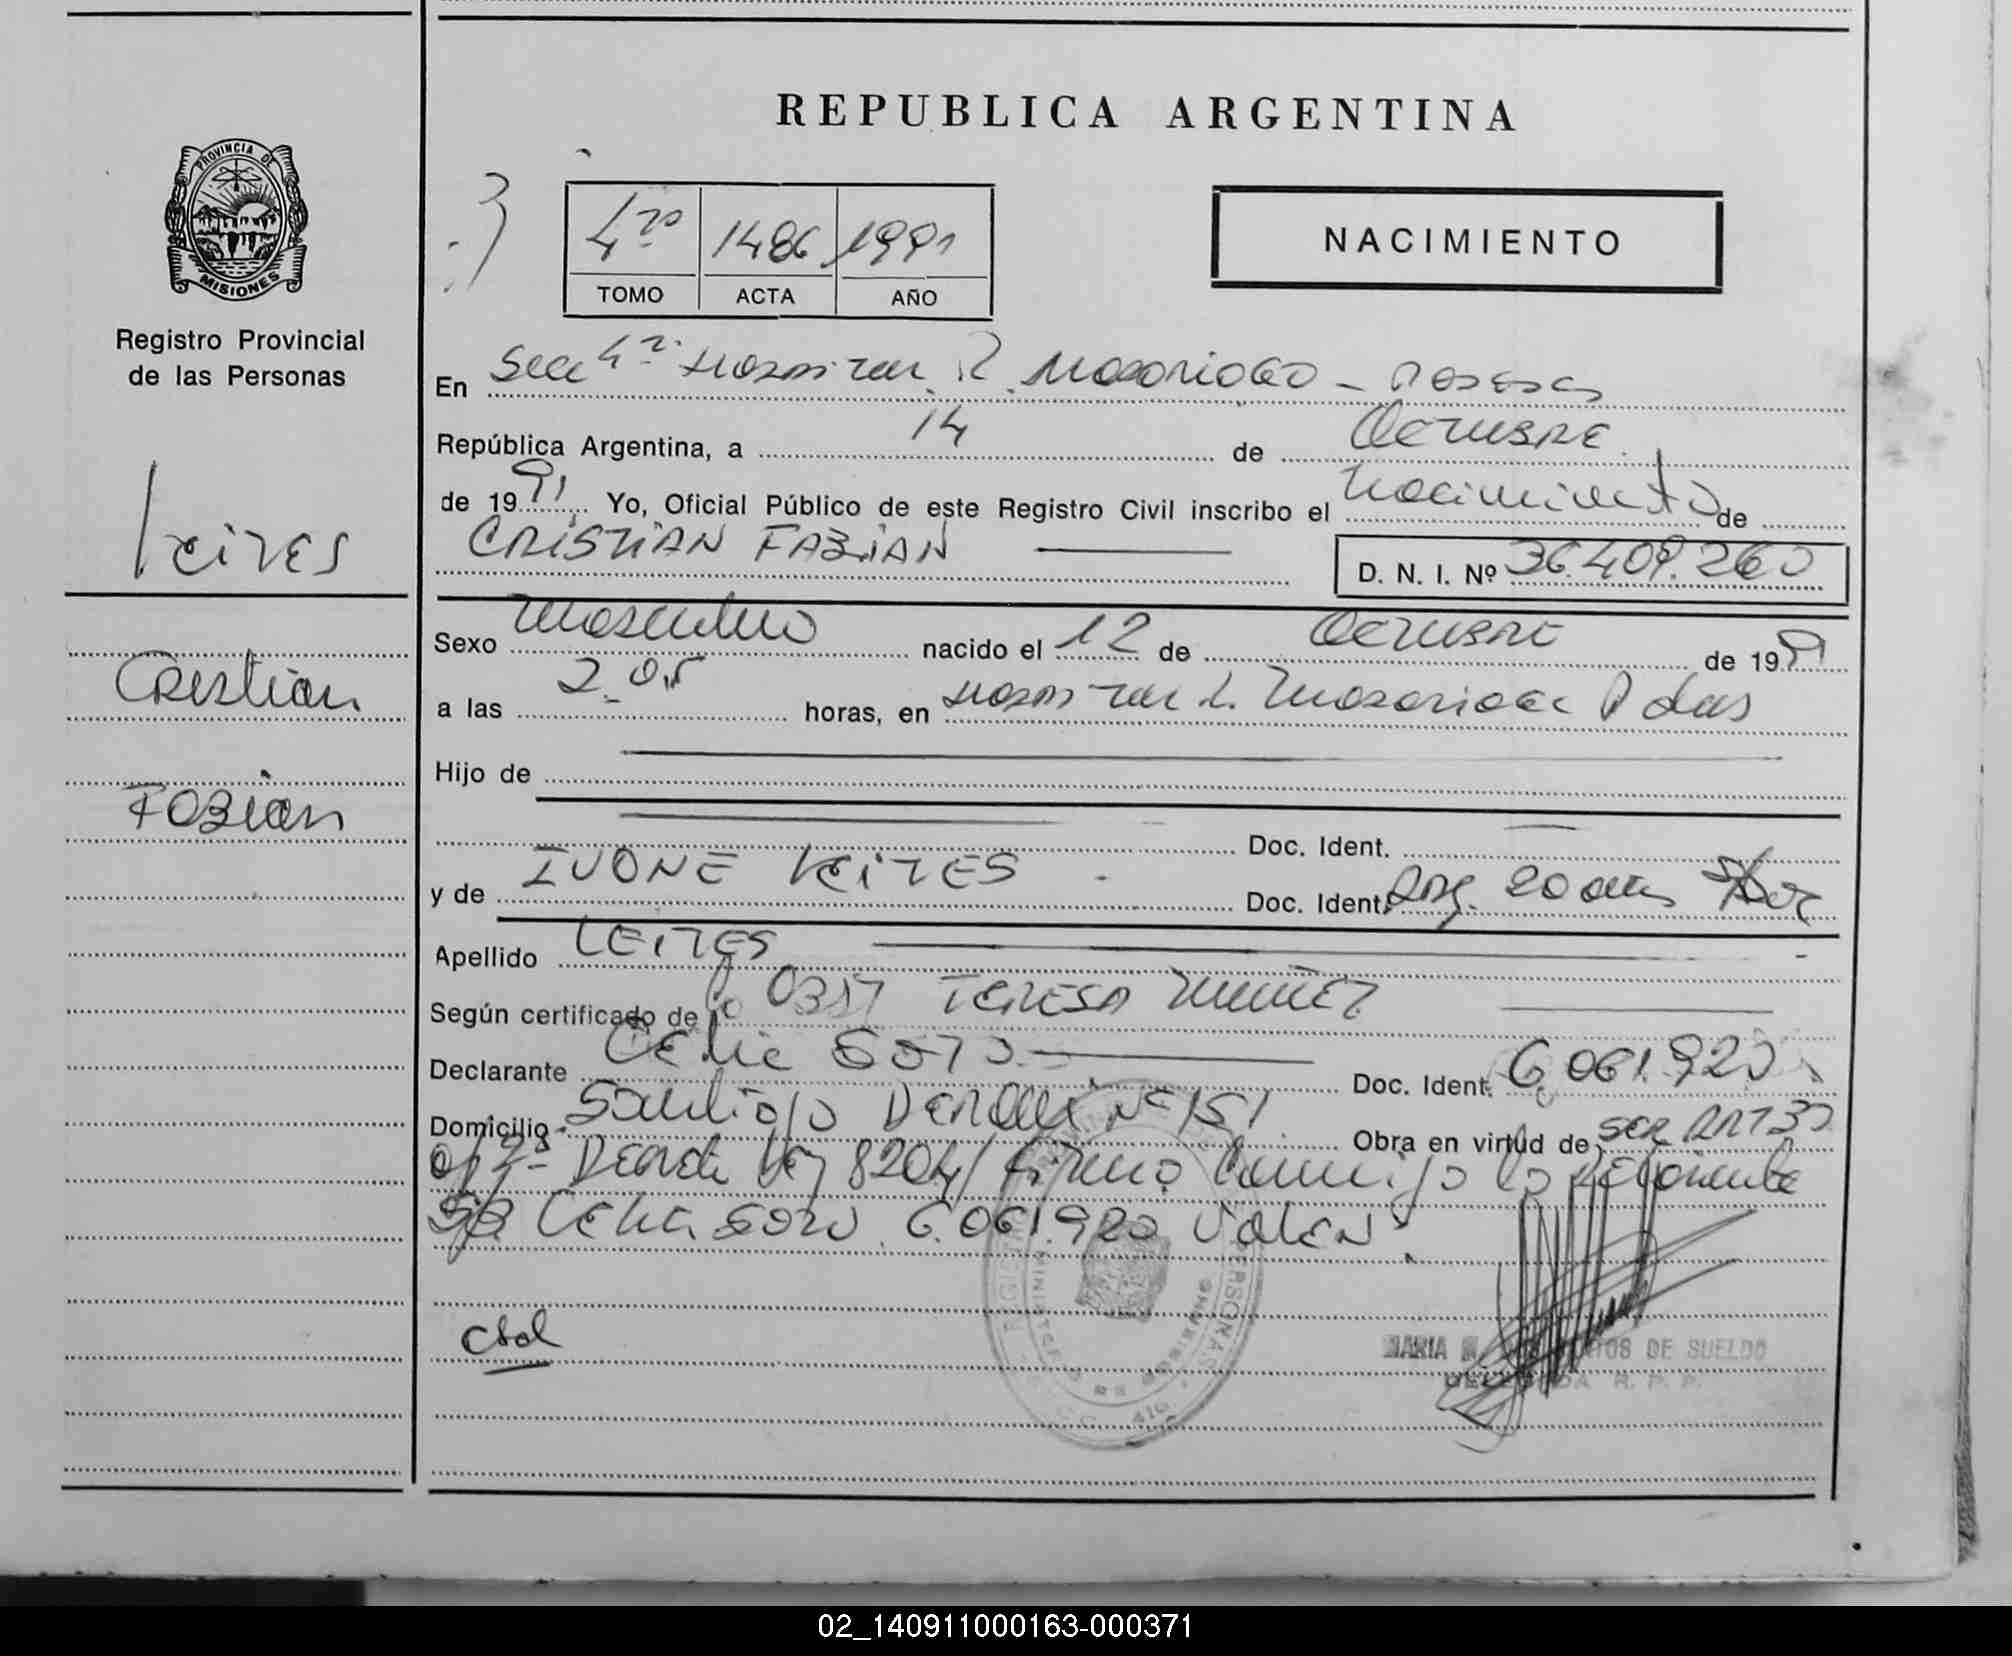 REPUBLICA ARGENTINA
PROVINCIA DE
MISIONES
Registro Provincial
de las Personas
4to 1486 1991
TOMO ACTA AÑO
NACIMIENTO
En Secc 4ta Hospital R. Madariaga - Posadas
República Argentina, a 14 de Octubre
de 1991 Yo, Oficial Público de este Registro Civil inscribo el nacimiento de
CRISTIAN FABIAN D. N. I. Nº 36.409.260
Leites
Cristian
Fabian
Sexo masculino nacido el 12 de Octubre de 1991
a las 2.05 horas, en Hospital R. Madariaga Pdas
Hijo de
Doc. Ident.
y de IVONE LEITES Doc. Ident. Arg. 20 años s/Doc
Apellido LEITES
Según certificado de TERESA
Declarante Celia Soto Doc. Ident. 6.061.920
Domicilio Santiago Derqui Nº 151 Obra en virtud de ser Art 30
Decreto Ley 8204/ firma conmigo la declarante
Celia Soto 6.061.920 Valen
MARIA DE SUELDO
DELEGADA R. P. P.
02_140911000163-000371